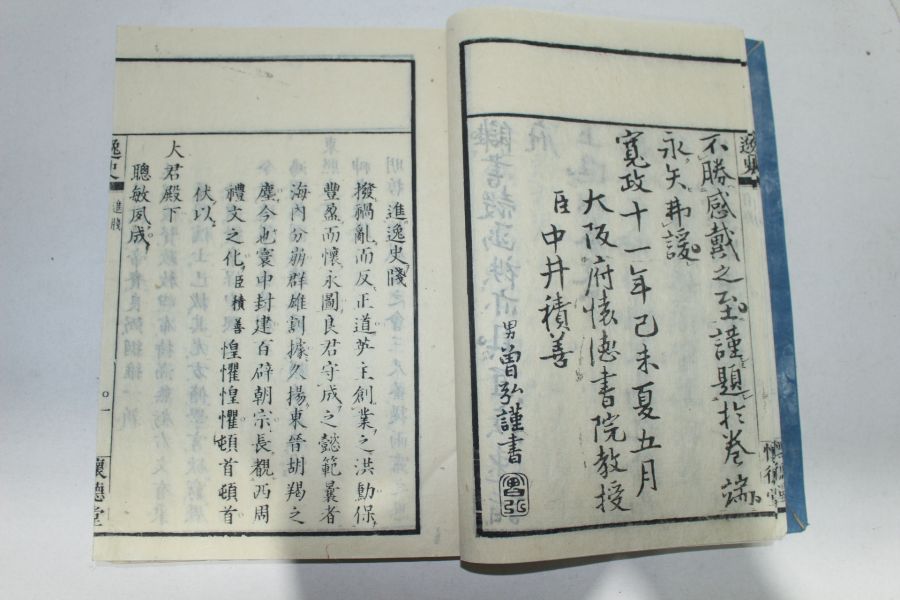 不勝感戴之至謹題於卷端
永矢弗諼
寬政十一年己未夏五月
大阪府懷德書院教授
臣中井積善
男曾弘謹書
曾弘
逸史
懷德堂
進逸史牋
撥禍亂而反正道英主創業之洪勳保
豐盈而懷永圖良君守成之懿範曩者
海內分崩群雄割據久揚東晉胡羯之
塵今也寰中封建百辟朝宗長覩西周
禮文之化臣積善惶懼惶懼頓首頓首
伏以
大君殿下
聰敏夙成
逸史
進牋
〇一
懷德堂